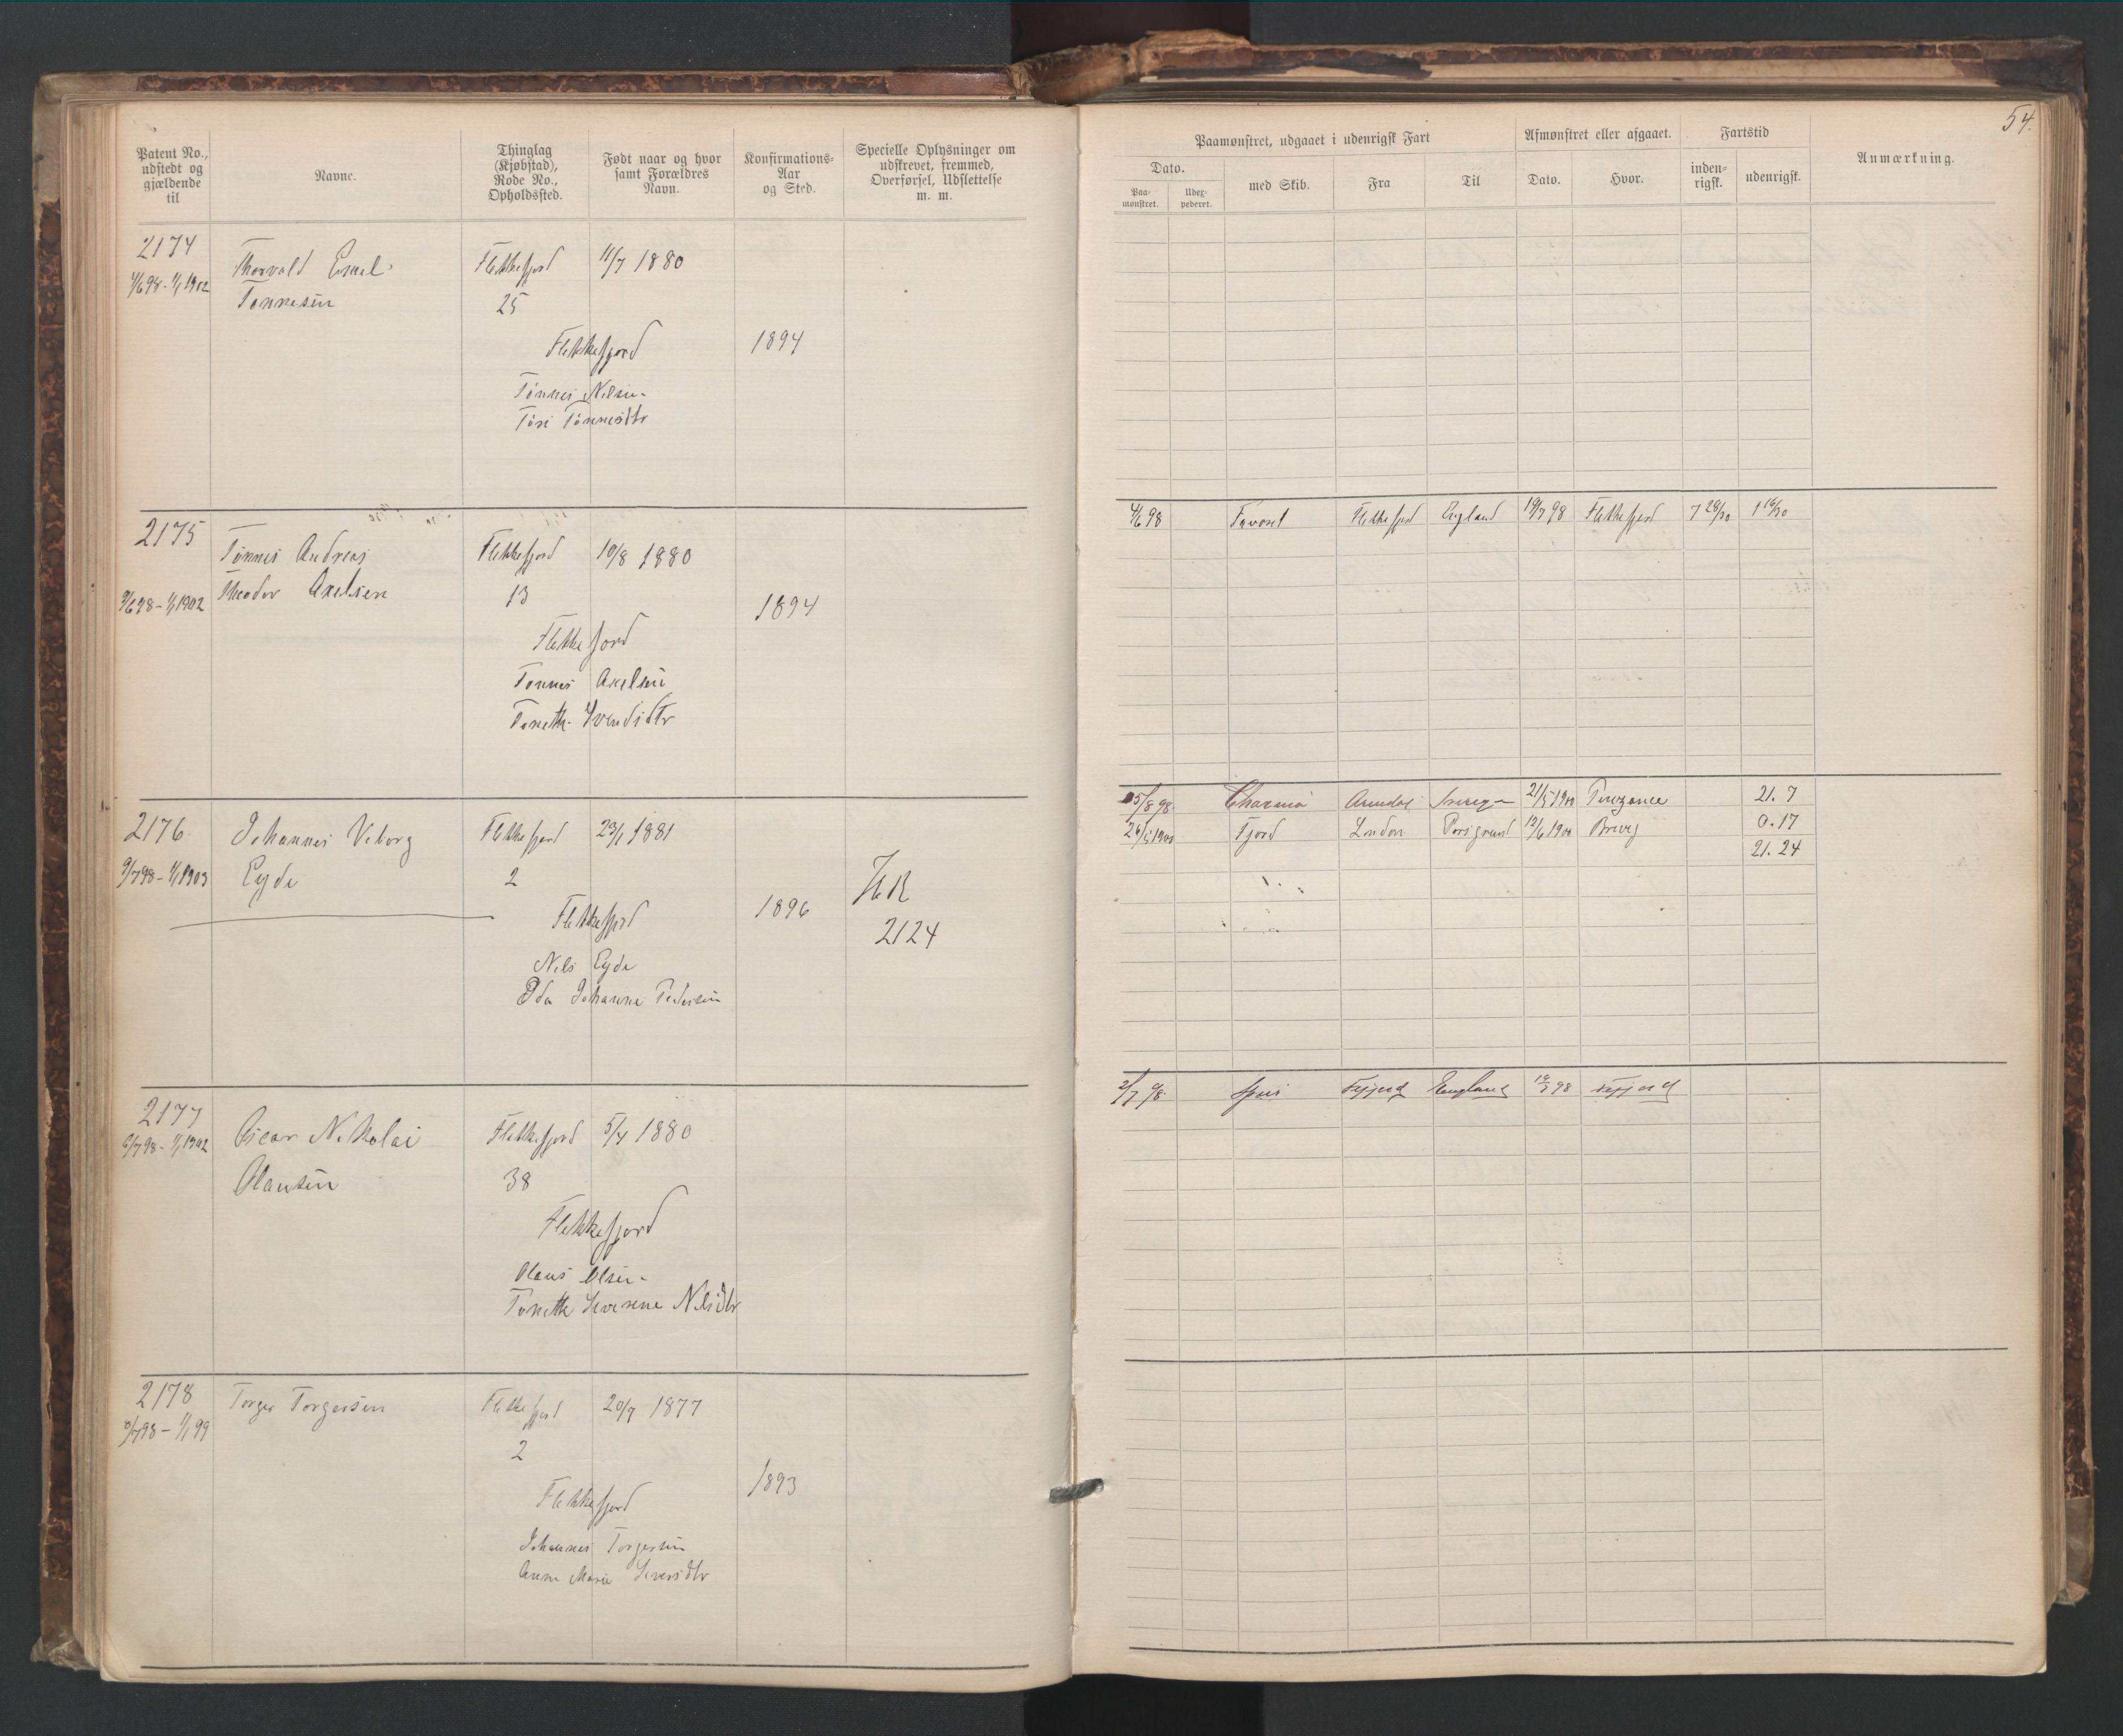 54.
Patent No., udstedt og gjældende til
Navne.
Thinglag (Kjøbstad), Rode No., Opholdssted.
Født naar og hvor samt Forældres Navn.
Konfirmations-Aar og Sted.
Specielle Oplysninger om udskrevet, fremmed, Overførsel, Udslettelse m. m.
Paamønstret, udgaaet i udenrigsk Fart
Afmønstret eller afgaaet.
Fartstid
Anmærkning.
Dato.
med Skib.
Fra
Til
Dato.
Hvor.
inden-rigsk.
udenrigsk.
Paa-mønstret.
Uder-pederet.
2174
4/6 98 - 1/1 1902
Thorvald Emil
Tønnesen
Flekkefjord 11/7 1880
25
Flekkefjord
1894
Tønnes Nilsen
Tønnesdtr
2175
9/6 98 - 1/1 1902
Tønnes Andreas
Theodor Axelsen
Flekkefjord 19/8 1880
13
1894
Flekkefjord
Tønnes Axelsen
Svendsdtr
4/6 98 Favorit Flekkefjord England 19/7 98 Flekkefjord 7 29/30 1 16/30
2176
9/7 98 - 1/1 1903
Johannes Viborg
Eyde
Flekkefjord 23/1 1881
2
Flekkefjord
1896
HR
2124
Nils Eyde
Ida Johanne Pedersen
5/8 98 Arendal 21/5 1900 Penzance 21. 7
26/5 1900 Fjord London Porsgrund 12/6 1900 Brevig 0. 17
21. 24
2177
9/7 98 - 1/1 1902
Oscar Nikolai
Olausen
Flekkefjord 5/4 1880
38
Flekkefjord
Olaus Olsen
Tonette Severine Nilsdtr
2/7 98 England
2178
98 - 1/1 99
Torger Torgersen
Flekkefjord 20/7 1877
2
Flekkefjord
1893
Johannes Torgersen
Anne Marie Siversdtr